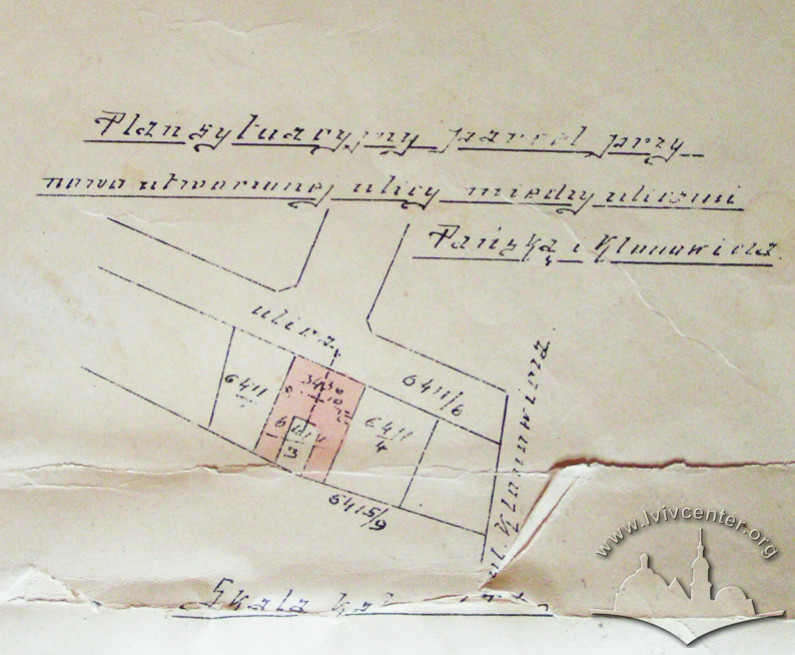 Plan sytuacyjny parcel przy
nowo utworzonej ulicy między ulicami
Pańską i Klonowicza.
ulica
6411/6
6411
3436
6411
4
3
6415/9
ul. Klonowicza
Skala kat
www.lvivcenter.org